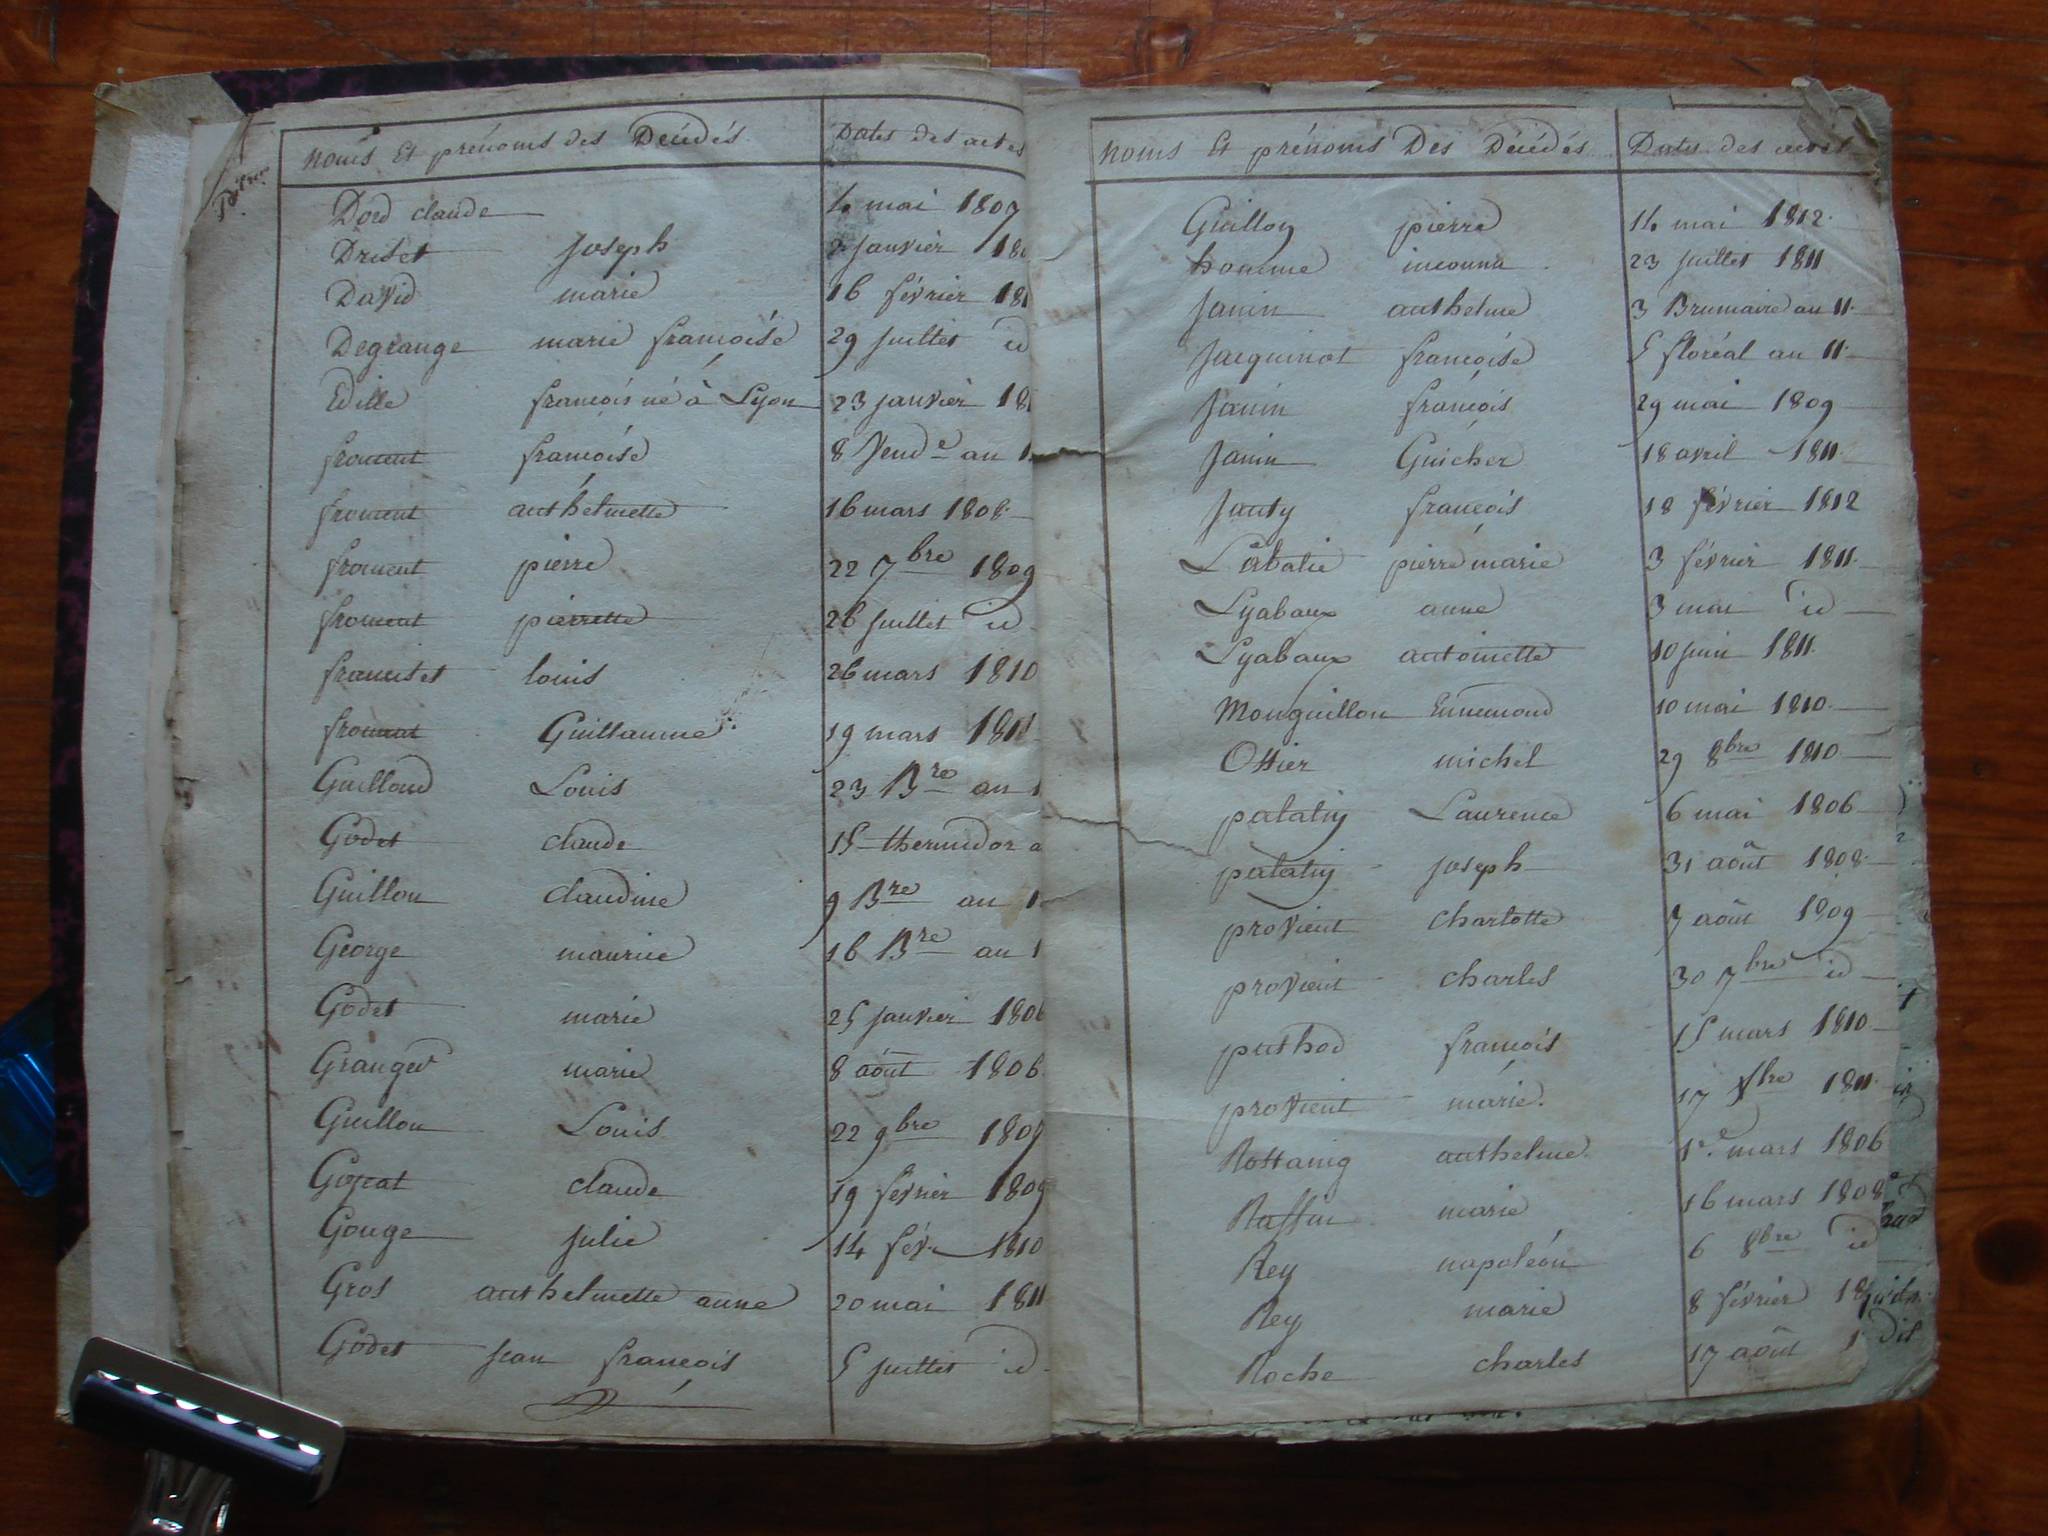 Noms Et prénoms des Décédés Dates des actes
Dord claude 4 mai 1807
Driset joseph 2 janvier 180
David marie 16 février 181
Degrange marie françoise 29 juillet id
Edille françois né à Lyon 23 janvier 18
froment françoise 8 Vend.e an 1
froment anthelmette 16 mars 1808
froment pierre 22 7bre 1809
froment pierrette 26 juillet id
louis 26 mars 1810
froment Guillaume 19 mars 1811
Guilloud Louis 23 Bre an 1
Godet claude 15 thermidor a
Guillon claudine 9 Bre an 1
George maurice 16 Bre an 1
Godet marie 25 janvier 1806
Granger marie 8 août 1806
Guillon Louis 22 9bre 1809
claude 19 février 1809
Gouge julie 14 fév. 1810
Gros anthelmette anne 20 mai 1811
Godet jean françois 5 juillet id
Noms Et prénoms Des Décédés Dates des actes
Guillon pierre 14 mai 1812
homme inconnu 23 juillet 1811
Janin anthelme 3 Brumaire an 11
Jacquinot françoise 5 floréal an 11
Janin françois 29 mai 1809
Janin Guicher 18 avril 1811
Janty françois 18 février 1812
Labatie pierre marie 3 février 1811
Lyabaux anne 3 mai id
Lyabaux antoinette 10 juin 1811
Monguillon Ennemond 10 mai 1810
Ottier michel 29 8bre 1810
palatin Laurence 6 mai 1806
palatin joseph 31 août 1808
provient charlotte 7 août 1809
provient charles 30 7bre id
puthod françois 15 mars 1810
provient marie 17 Xbre 1811
Rostaing anthelme 1er mars 1806
Ruffin marie 16 mars 1808
Rey napoléon 6 8bre id
Rey marie 8 février 18
Roche charles 17 août 1